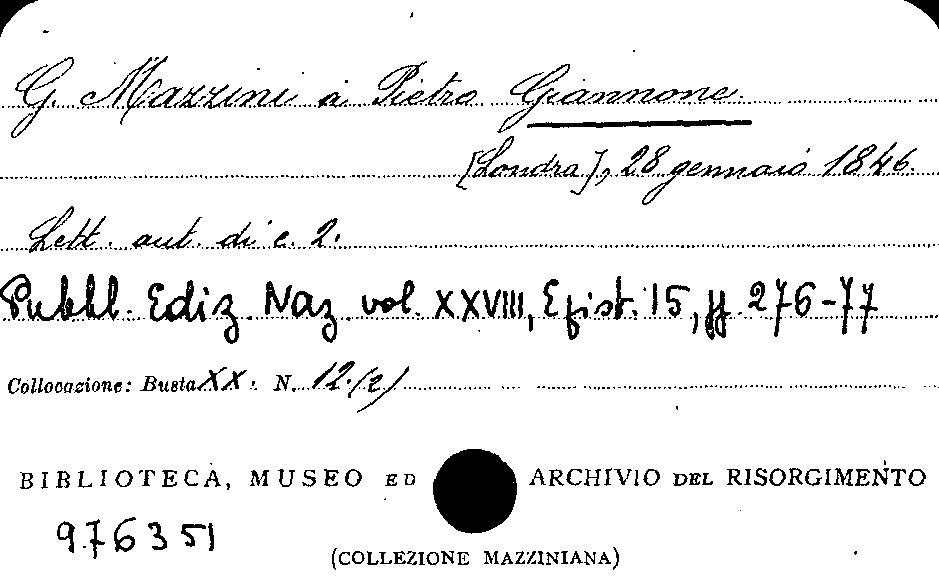 G. Mazzini a Pietro Giannone.
[Londra], 28 gennaio 1846.
Lett. aut. di c. 2.
Pubbl. Ediz. Naz. vol. XXVIII, Epist. 15, pp. 276-77
Collocazione: Busta XX. N. 12.(2)
BIBLIOTECA, MUSEO ED ARCHIVIO DEL RISORGIMENTO
976351
(COLLEZIONE MAZZINIANA)